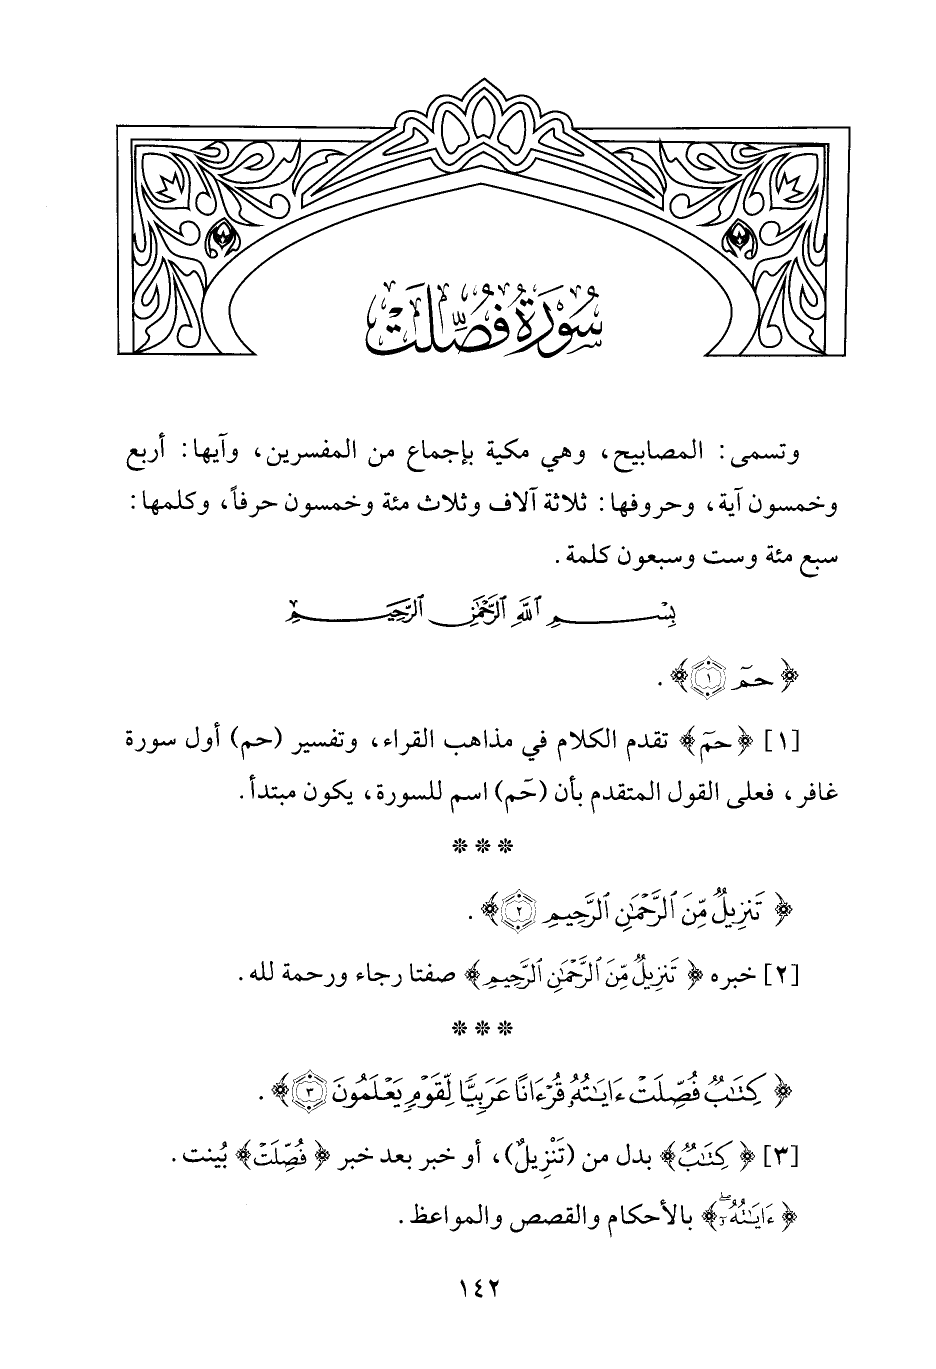 سُورَةُ فُصِّلَتْ
وتسمى: المصابيح، وهي مكية بإجماع من المفسرين، وآيها: أربع
وخمسون آية، وحروفها: ثلاثة آلاف وثلاث مئة وخمسون حرفاً، وكلمها:
سبع مئة وست وسبعون كلمة.
بِسْمِ ٱللَّهِ ٱلرَّحْمَٰنِ ٱلرَّحِيمِ
﴿حمٓ ١﴾.
[١] ﴿حمٓ﴾ تقدم الكلام في مذاهب القراء، وتفسير (حم) أول سورة
غافر، فعلى القول المتقدم بأن (حَم) اسم للسورة، يكون مبتدأ.
***
﴿تَنزِيلٌ مِّنَ ٱلرَّحْمَٰنِ ٱلرَّحِيمِ ٢﴾.
[٢] خبره ﴿تَنزِيلٌ مِّنَ ٱلرَّحْمَٰنِ ٱلرَّحِيمِ﴾ صفتا رجاء ورحمة لله.
***
﴿كِتَٰبٌ فُصِّلَتْ ءَايَٰتُهُۥ قُرْءَانًا عَرَبِيًّا لِّقَوْمٍ يَعْلَمُونَ ٣﴾.
[٣] ﴿كِتَٰبٌ﴾ بدل من (تَنْزِيلٌ)، أو خبر بعد خبر ﴿فُصِّلَتْ﴾ بُينت.
﴿ءَايَٰتُهُۥٓ﴾ بالأحكام والقصص والمواعظ.
١٤٢